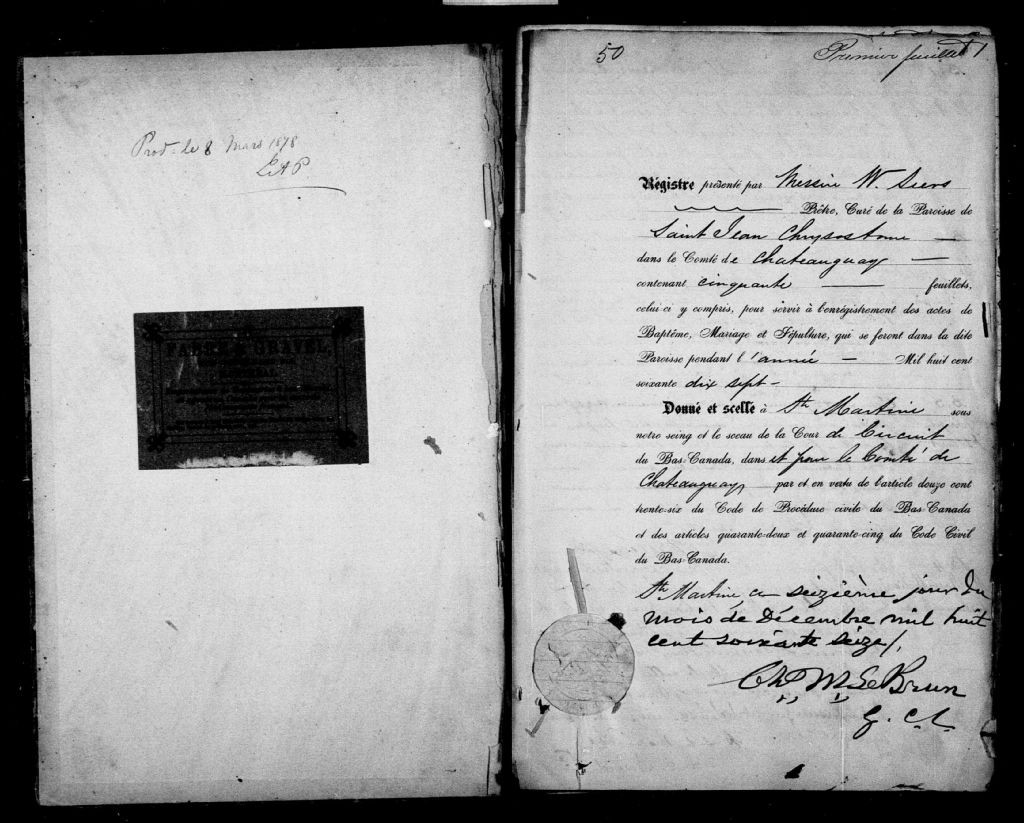 Prod. le 8 Mars 1878
50
Premier feuillet 1
Régistre présenté par Messire W. Seers
Prêtre, Curé de la Paroisse de
Saint Jean Chrysostome —
dans le Comté de Chateauguay —
contenant cinquante — feuillets,
celui-ci y compris, pour servir à l'enrégistrement des actes de
Baptême, Mariage et Sépulture, qui se feront dans la dite
Paroisse pendant l'année — Mil huit cent
soixante dix sept —
Donné et scellé à Ste Martine sous
notre seing et le sceau de la Cour de Circuit
du Bas-Canada, dans et pour le Comté de
Chateauguay par et en vertu de l'article douze cent
trente-six du Code de Procédure civile du Bas-Canada
et des articles quarante-deux et quarante-cinq du Code Civil
du Bas-Canada.
Ste Martine, ce seizième jour du
mois de Décembre mil huit
cent soixante seize/.
M Le Brun
G. C. C.